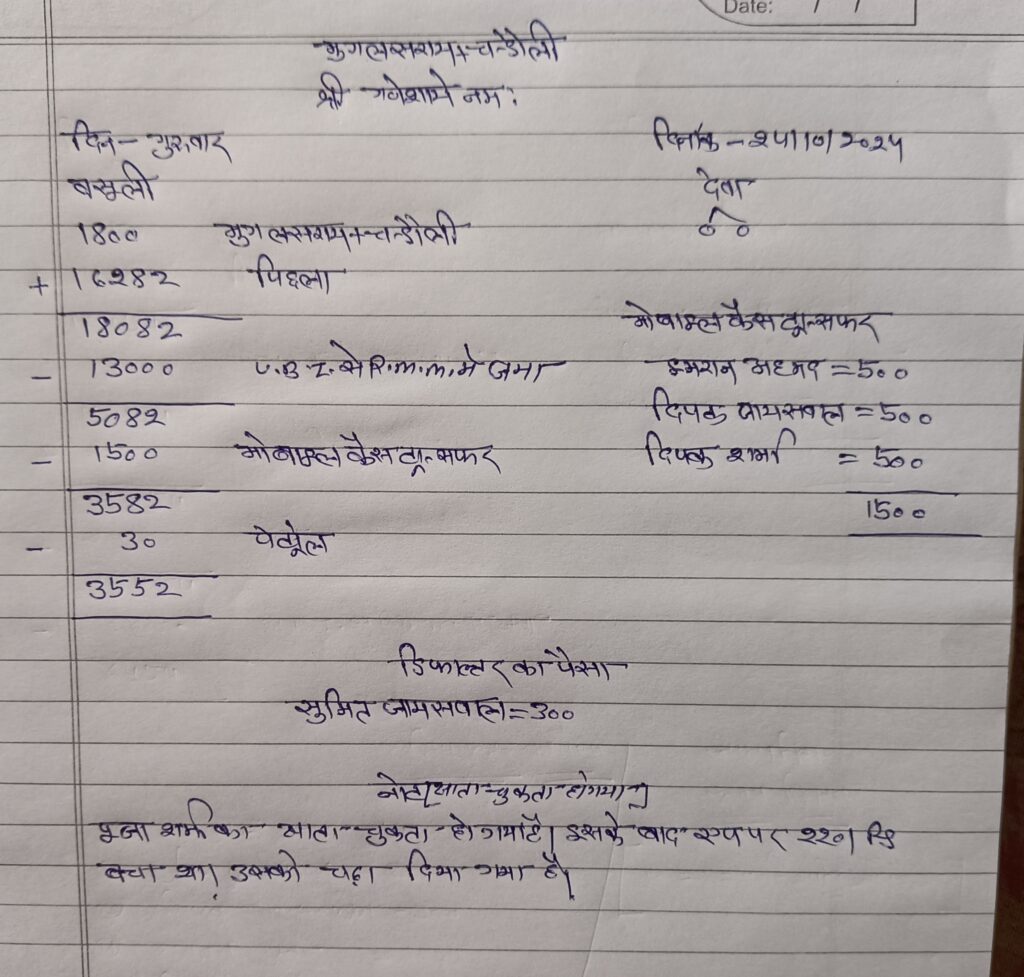 Date: / /
मुगलसराय+चन्डौली
श्री गणेशाय नमः
दिन - गुरुवार दिनांक - २५/१०/२०२५
बसुली देवा
1800 मुगलसराय+चन्डौली ००
+ 16282 पिछला
18082 मोबाइल कैस ट्रान्सफर
- 13000 U.B.I. से P.M.M. मे जमा इमरान अहमद = 500
5082 दिपक जायसवाल = 500
- 1500 मोबाइल कैस ट्रान्सफर दिपक शर्मा = 500
3582 1500
- 30 पेट्रोल
3552
डिफाल्टर का पैसा
सुमित जायसवाल = 300
नोट [खाता चुकता हो गया]
शर्मा का खाता चुकता हो गया है। इसके बाद एप पर
बचा था। उसको चढ़ा दिया गया है।